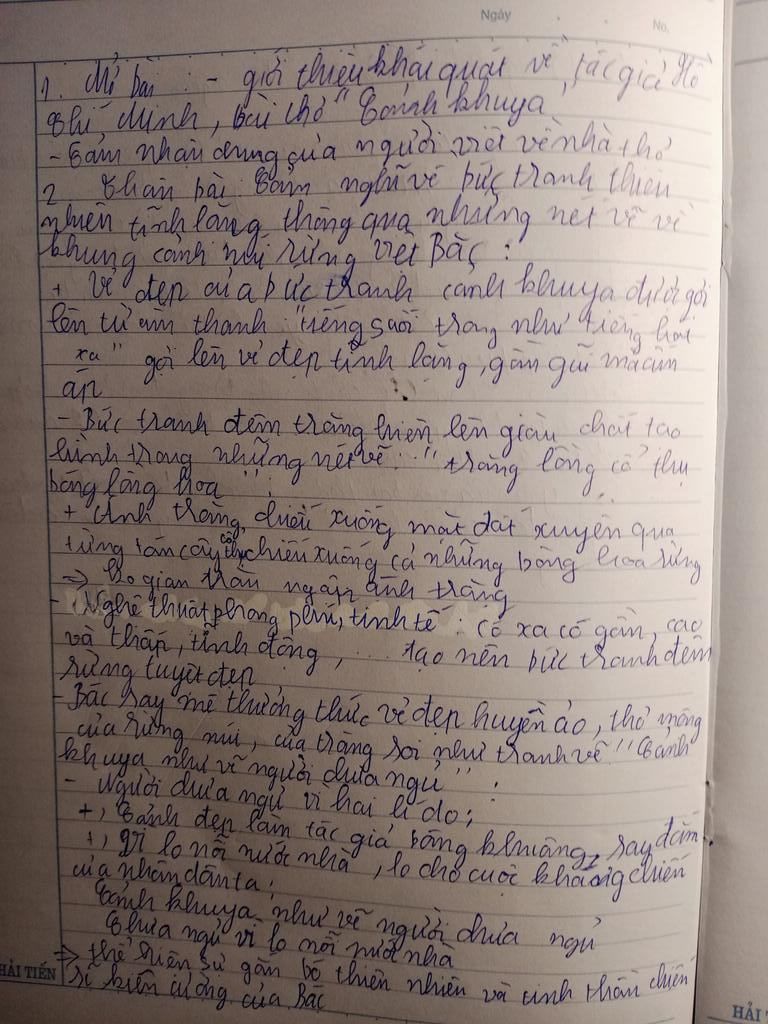 Ngày
No.
1. Mở bài : - giới thiệu khái quát về tác giả Hồ
Chí Minh, bài thơ " Cảnh khuya "
- Cảm nhận chung của người viết về nhà thơ
2 Thân bài Cảm nghĩ về bức tranh thiên
nhiên tĩnh lặng thông qua những nét vẽ về
khung cảnh núi rừng Việt Bắc :
+ Vẻ đẹp của bức tranh cảnh khuya được gợi
lên từ âm thanh " tiếng suối trong như tiếng hát
xa " gợi lên vẻ đẹp tĩnh lặng, gần gũi mà ấm
áp
- Bức tranh đêm trăng hiện lên giàu chất tạo
hình trong những nét vẽ : " trăng lồng cổ thụ
bóng lồng hoa " :
+ Ánh trăng chiếu xuống mặt đất xuyên qua
từng tán cây cổ thụ chiếu xuống cả những bông hoa rừng
=> ko gian tràn ngập ánh trăng
- Nghệ thuật phong phú, tinh tế : có xa có gần, cao
và thấp, tĩnh động, ... tạo nên bức tranh đêm
rừng tuyệt đẹp
- Bác say mê thưởng thức vẻ đẹp huyền ảo, thơ mộng
của rừng núi, của trăng soi như tranh vẽ " Cảnh
khuya như vẽ người chưa ngủ " :
- Người chưa ngủ vì hai lí do :
+, Cảnh đẹp làm tác giả bâng khuâng, say đắm
+, Vì lo nỗi nước nhà, lo cho cuộc kháng chiến
của nhân dân ta :
Cảnh khuya như vẽ người chưa ngủ
Chưa ngủ vì lo nỗi nước nhà
=> thể hiện sự gắn bó thiên nhiên và tinh thần chiến
sĩ kiên cường của Bác
HẢI TIẾN
HẢI